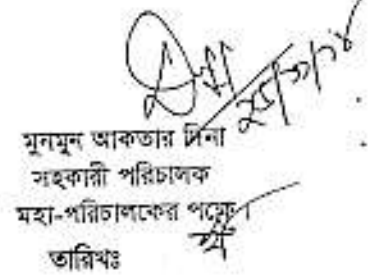 মুনমুন আকতার দিনা
সহকারী পরিচালক
মহা-পরিচালকের পক্ষে।
তারিখঃ